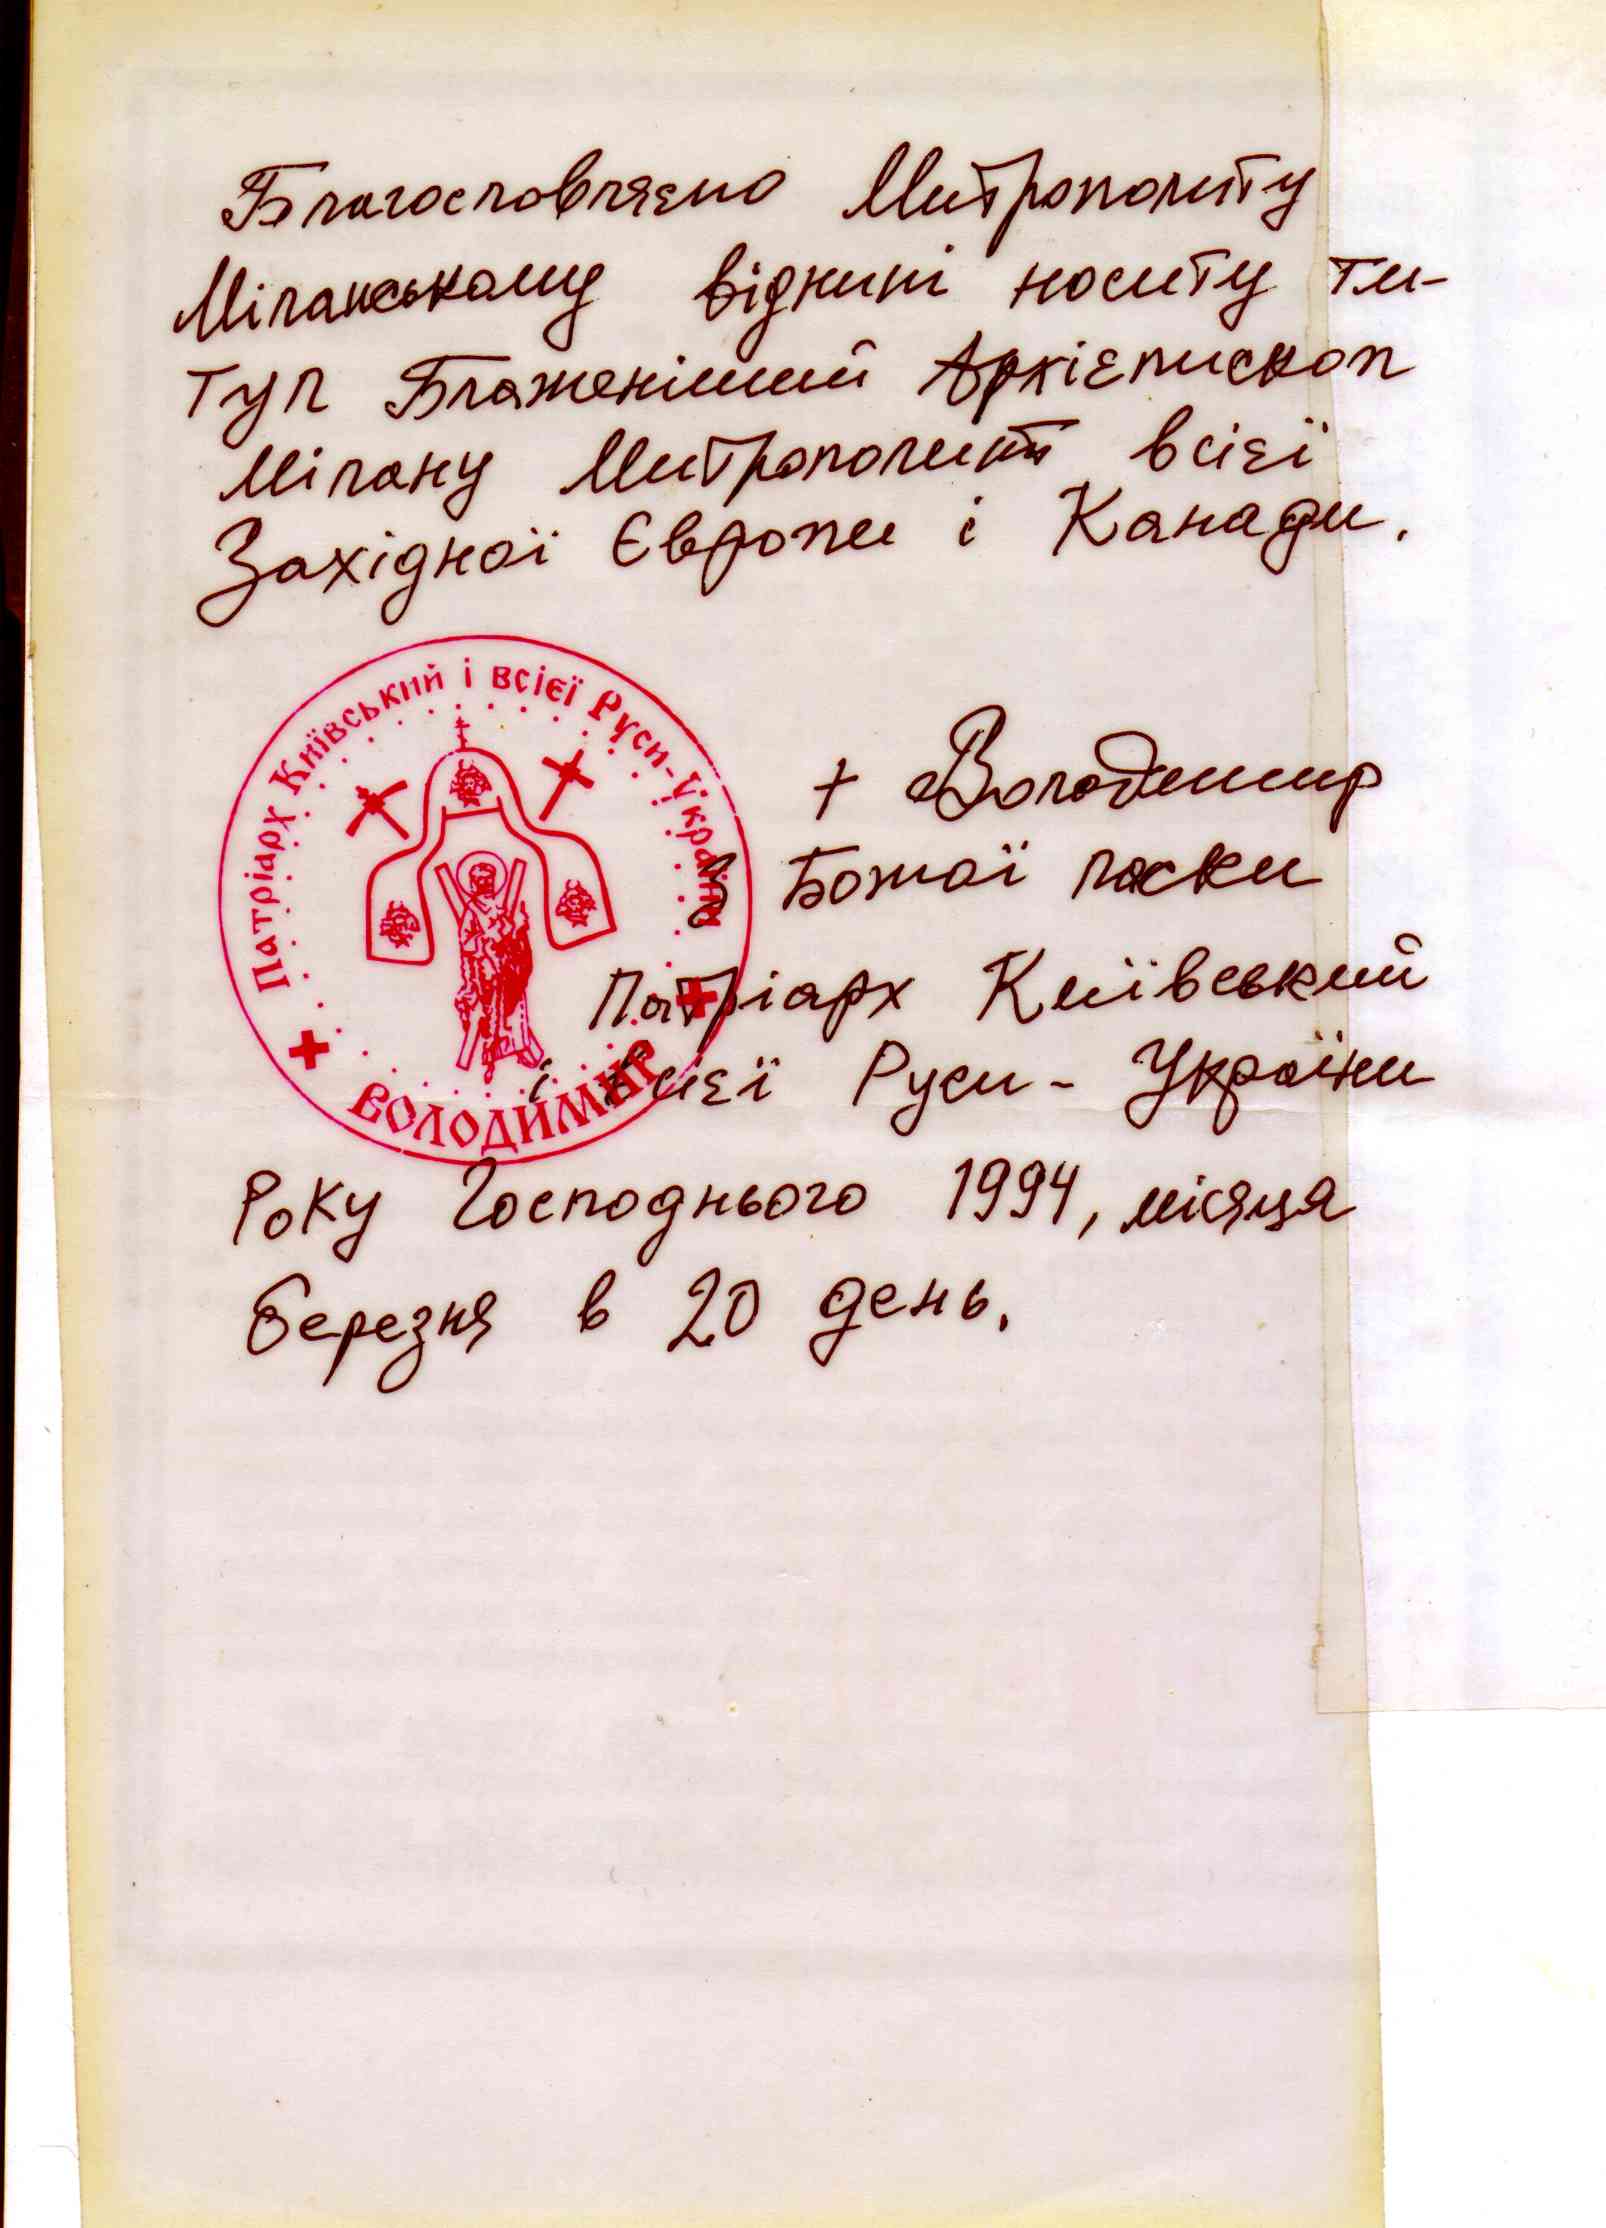 Благословляємо Митрополиту
Міланському віднині носиту ти-
тул Блаженіший Архієпископ
Мілану Митрополит всієї
Західної Європи і Канади.
Патріарх Київський і всієї Руси-України
ВОЛОДИМИР
+ Володимир
З Божої ласки
Патріарх Київський
і всієї Руси - України
Року Господнього 1994, місяця
березня в 20 день.